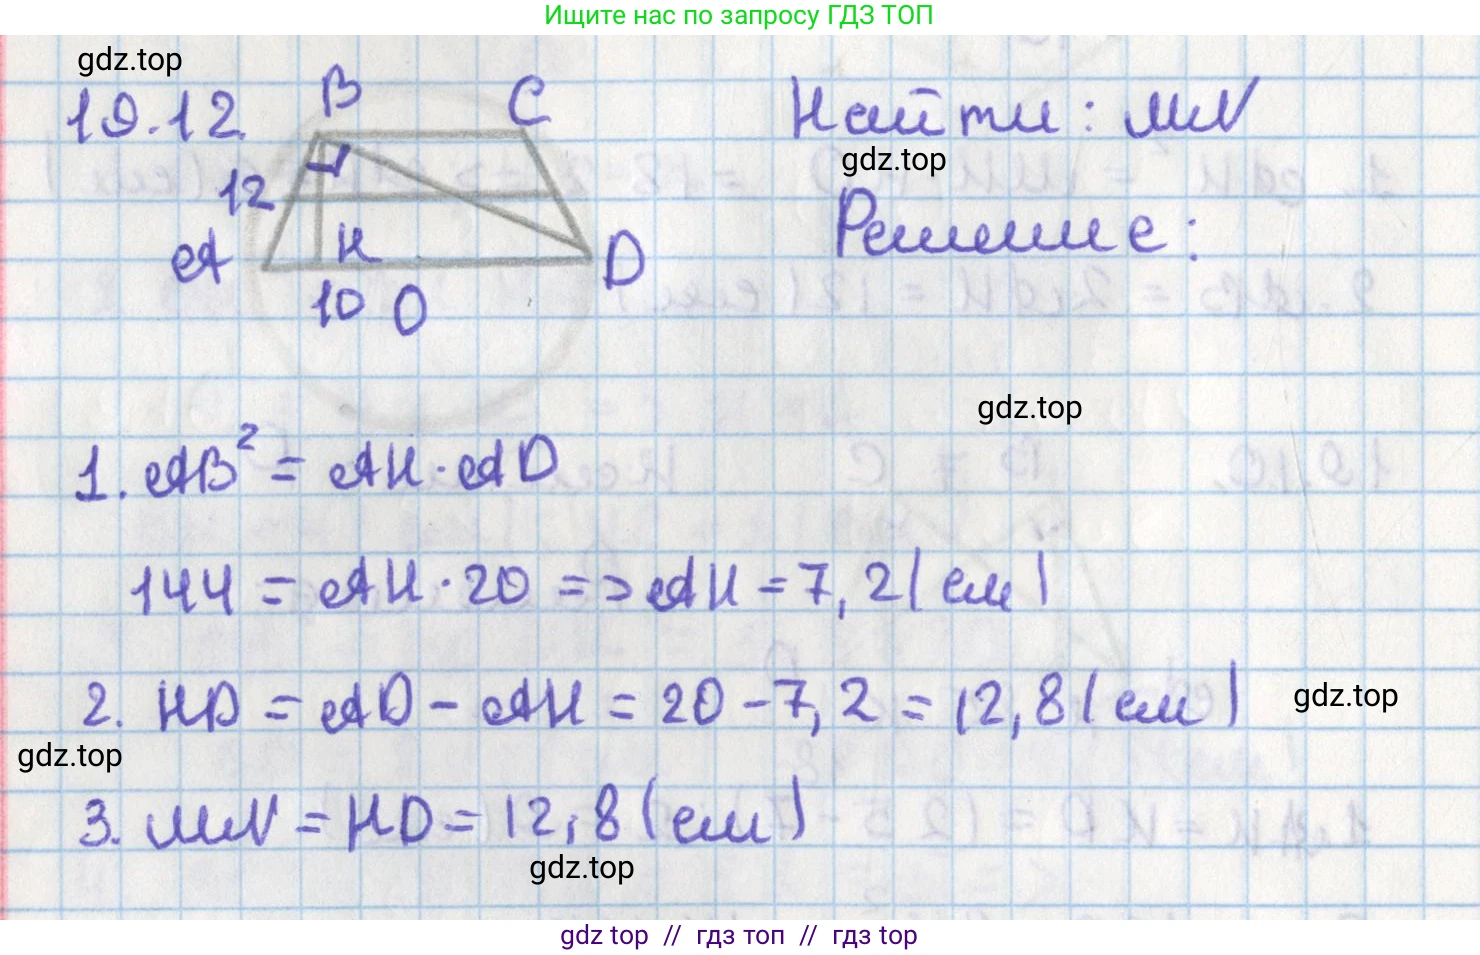 Ищите нас по запросу ГДЗ ТОП
gdz.top
19.12.
B
C
Найти: MN
gdz.top
12
Решение:
A
H
D
10
O
gdz.top
1. AB² = AH · AD
144 = AH · 20 => AH = 7,2 (см)
2. HD = AD - AH = 20 - 7,2 = 12,8 (см)
gdz.top
gdz.top
3. MN = HD = 12,8 (см)
gdz.top
gdz top // гдз топ // гдз top